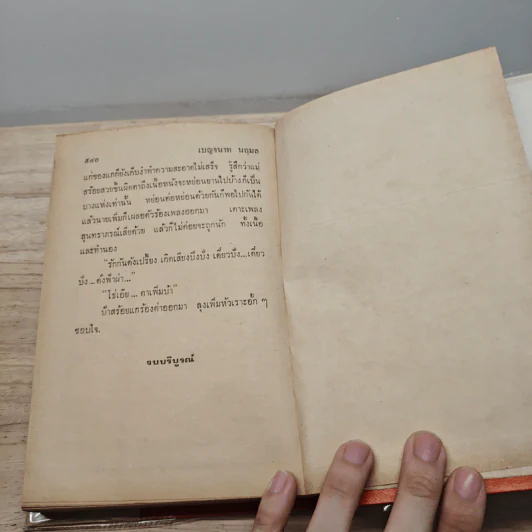 ๕๙๖ เบญจนาท นฤมล
แก่ของแกก็ยังเก็บงำทำความสะอาดไม่เสร็จ รู้สึกว่าแม่
สร้อยสวยขึ้นผิดตาถึงเนื้อหนังจะหย่อนยานไปบ้างก็เป็น
บางแห่งเท่านั้น หย่อนต่อหย่อนด้วยกันก็พอไปกันได้
แล้วนายเพิ่มก็เผลอตัวร้องเพลงออกมา เคาะเพลง
สุนทราภรณ์เสียด้วย แล้วก็ไม่ค่อยจะถูกนัก ทั้งเนื้อ
และทำนอง
"รักกันดังเปรี้ยง เกิดเสียงบึงบัง เดี๋ยวบึง...เดี๋ยว
บัง...ดังฟ้าผ่า..."
"ไฮ่เอ้ย... ตาเพิ่มบ้า"
ป้าสร้อยแกร้องด่าออกมา ลุงเพิ่มหัวเราะอั้ก ๆ
ชอบใจ.
จบบริบูรณ์